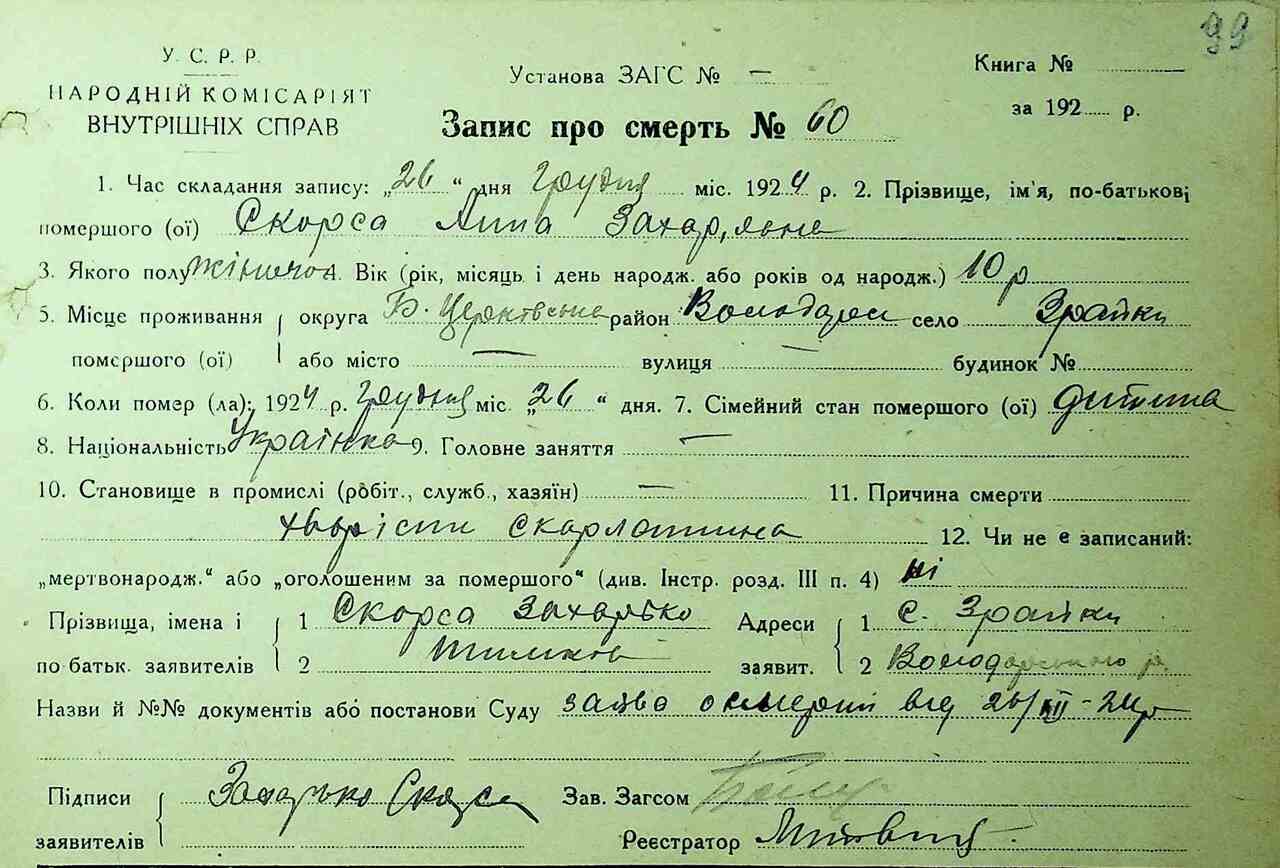 99
У. С. Р. Р.
НАРОДНІЙ КОМІСАРІЯТ
ВНУТРІШНІХ СПРАВ
Установа ЗАГС № —
Книга №
за 192 р.
Запис про смерть № 60
1. Час складання запису: „26“ дня Грудня міс. 1924 р. 2. Прізвище, ім'я, по-батькові
помершого (ої) Скорса Анна Захар,явна
3. Якого полу жіночо 4. Вік (рік, місяць і день народж. або років од народж.) 10 р
5. Місце проживання округа Б. Церковська район Володарсн село Зрайки
помершого (ої) або місто — вулиця — будинок №
6. Коли помер (ла): 1924 р. Грудня міс. „26“ дня. 7. Сімейний стан помершого (ої) дитина
8. Національність Українка 9. Головне заняття —
10. Становище в промислі (робіт., служб., хазяїн) — 11. Причина смерти
хворість скарлатина 12. Чи не є записаний:
„мертвонародж.“ або „оголошеним за помершого“ (див. Інстр. розд. III п. 4) ні
Прізвища, імена і 1 Скорса Захарько Адреси 1 с. Зрайки
по батьк. заявителів 2 заявит. 2 Володарського р.
Назви й №№ документів або постанови Суду заява о смерти від 26/XII-24р
Підписи Захарько Скорса Зав. Загсом
заявителів Реєстратор